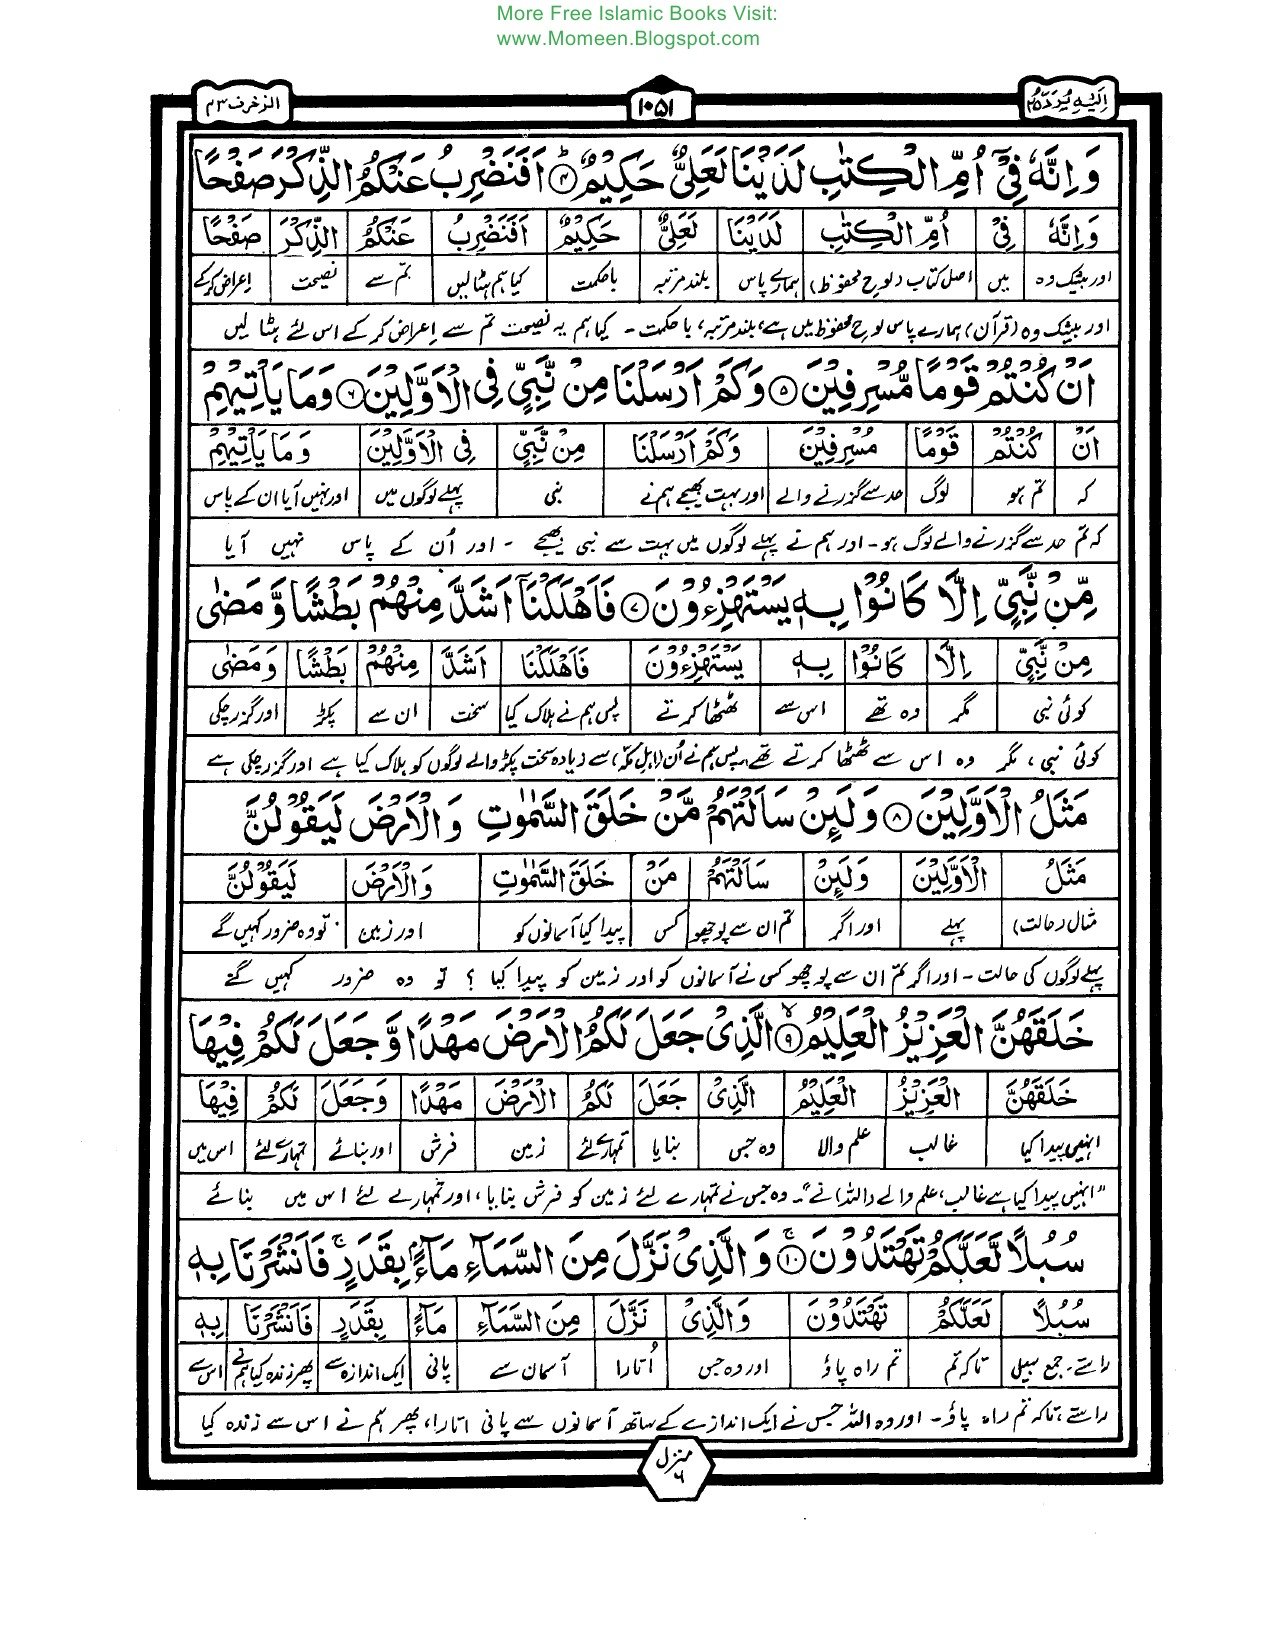 More Free Islamic Books Visit:
www.Momeen.Blogspot.com
اِلَیْہِ یُرَدُّ ۲۵ ۱۰۵۱ الزخرف ۴۳
وَ اِنَّهٗ فِیْۤ اُمِّ الْكِتٰبِ لَدَیْنَا لَعَلِیٌّ حَكِیْمٌؕ۝۴ اَفَنَضْرِبُ عَنْكُمُ الذِّكْرَ صَفْحًا
وَ اِنَّهٗ فِیْۤ اُمِّ الْكِتٰبِ لَدَیْنَا لَعَلِیٌّ حَكِیْمٌ اَفَنَضْرِبُ عَنْكُمُ الذِّكْرَ صَفْحًا
اور بیشک وہ میں اصل کتاب (لوحِ محفوظ) ہمارے پاس بلند مرتبہ باحکمت کیا ہم ہٹا لیں تم سے نصیحت اعراض کر کے
اور بیشک وہ (قرآن) ہمارے پاس لوحِ محفوظ میں ہے، بلند مرتبہ، با حکمت - کیا ہم یہ نصیحت تم سے اِعراض کر کے اس لئے ہٹا لیں
اَنْ كُنْتُمْ قَوْمًا مُّسْرِفِیْنَ۝۵ وَ كَمْ اَرْسَلْنَا مِنْ نَّبِیٍّ فِی الْاَوَّلِیْنَ۝۶ وَ مَا یَاْتِیْهِمْ
اَنْ كُنْتُمْ قَوْمًا مُسْرِفِیْنَ وَ كَمْ اَرْسَلْنَا مِنْ نَّبِیٍّ فِی الْاَوَّلِیْنَ وَ مَا یَاْتِیْهِمْ
کہ تم ہو لوگ حد سے گزرنے والے اور بہت بھیجے ہم نے نبی پہلے لوگوں میں اور نہیں آیا ان کے پاس
کہ تم حد سے گزرنے والے لوگ ہو - اور ہم نے پہلے لوگوں میں بہت سے نبی بھیجے - اور اُن کے پاس نہیں آیا
مِّنْ نَّبِیٍّ اِلَّا كَانُوْا بِهٖ یَسْتَهْزِءُوْنَ۝۷ فَاَهْلَكْنَاۤ اَشَدَّ مِنْهُمْ بَطْشًا وَّ مَضٰی
مِنْ نَّبِیٍّ اِلَّا كَانُوْا بِهٖ یَسْتَهْزِءُوْنَ فَاَهْلَكْنَا اَشَدَّ مِنْهُمْ بَطْشًا وَ مَضٰی
کوئی نبی مگر وہ تھے اس سے ٹھٹھا کرتے پس ہم نے ہلاک کیا سخت ان سے پکڑ اور گزر چکی
کوئی نبی، مگر وہ اس سے ٹھٹھا کرتے تھے، پس ہم نے اُن (اہلِ مکہ) سے زیادہ سخت پکڑ والے لوگوں کو ہلاک کیا ہے اور گزر چکی ہے
مَثَلُ الْاَوَّلِیْنَ۝۸ وَ لَىِٕنْ سَاَلْتَهُمْ مَّنْ خَلَقَ السَّمٰوٰتِ وَ الْاَرْضَ لَیَقُوْلُنَّ
مَثَلُ الْاَوَّلِیْنَ وَ لَىِٕنْ سَاَلْتَهُمْ مَنْ خَلَقَ السَّمٰوٰتِ وَ الْاَرْضَ لَیَقُوْلُنَّ
مثال (حالت) پہلے اور اگر تم ان سے پوچھو کس پیدا کیا آسمانوں کو اور زمین تو وہ ضرور کہیں گے
پہلے لوگوں کی حالت - اور اگر تم ان سے پوچھو کس نے آسمانوں کو اور زمین کو پیدا کیا ؟ تو وہ ضرور کہیں گے
خَلَقَهُنَّ الْعَزِیْزُ الْعَلِیْمُۙ۝۹ الَّذِیْ جَعَلَ لَكُمُ الْاَرْضَ مَهْدًا وَّ جَعَلَ لَكُمْ فِیْهَا
خَلَقَهُنَّ الْعَزِیْزُ الْعَلِیْمُ الَّذِیْ جَعَلَ لَكُمُ الْاَرْضَ مَهْدًا وَ جَعَلَ لَكُمْ فِیْهَا
انہیں پیدا کیا غالب علم والا وہ جس بنایا تمہارے لئے زمین فرش اور بنائے تمہارے لئے اس میں
"انہیں پیدا کیا ہے غالب، علم والے (اللہ) نے"۔ وہ جس نے تمہارے لئے زمین کو فرش بنایا، اور تمہارے لئے اس میں بنائے
سُبُلًا لَّعَلَّكُمْ تَهْتَدُوْنَۚ۝۱۰ وَ الَّذِیْ نَزَّلَ مِنَ السَّمَآءِ مَآءًۢ بِقَدَرٍۚ فَاَنْشَرْنَا بِهٖ
سُبُلًا لَعَلَّكُمْ تَهْتَدُوْنَ وَ الَّذِیْ نَزَّلَ مِنَ السَّمَآءِ مَآءً بِقَدَرٍ فَاَنْشَرْنَا بِهٖ
راستے - جمع سبیل تاکہ تم تم راہ پاؤ اور وہ جس اُتارا آسمان سے پانی ایک اندازہ سے پھر زندہ کیا ہم نے اس سے
راستے، تاکہ تم راہ پاؤ - اور وہ اللہ جس نے ایک اندازے کے ساتھ آسمانوں سے پانی اتارا، پھر ہم نے اس سے زندہ کیا
منزل ۶